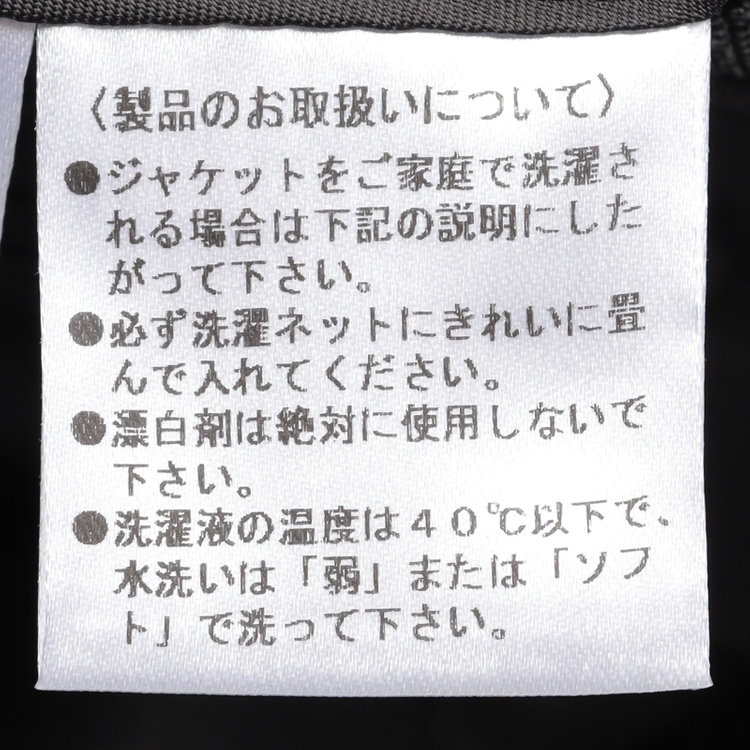 〈製品のお取扱いについて〉
●ジャケットをご家庭で洗濯さ
れる場合は下記の説明にした
がって下さい。
●必ず洗濯ネットにきれいに畳
んで入れてください。
●漂白剤は絶対に使用しないで
下さい。
●洗濯液の温度は40℃以下で、
水洗いは「弱」または「ソフ
ト」で洗って下さい。